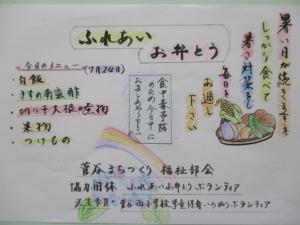 ふれあい
お弁とう
暑い日が続きますネ
しっかり食べて
暑さ対策をし
毎日を
お過し
下さい
今日のメニュー
(7月24日)
・白飯
・きすの南蛮酢
・切り干大根の煮物
・果物
・つけもの
食中毒予防
のため今日中に
お召しあがり下さい
菅谷まちづくり 福祉部会
協力団体 ふれあいお弁とうボランティア
民生委員・菅谷西小学校
ボランティア